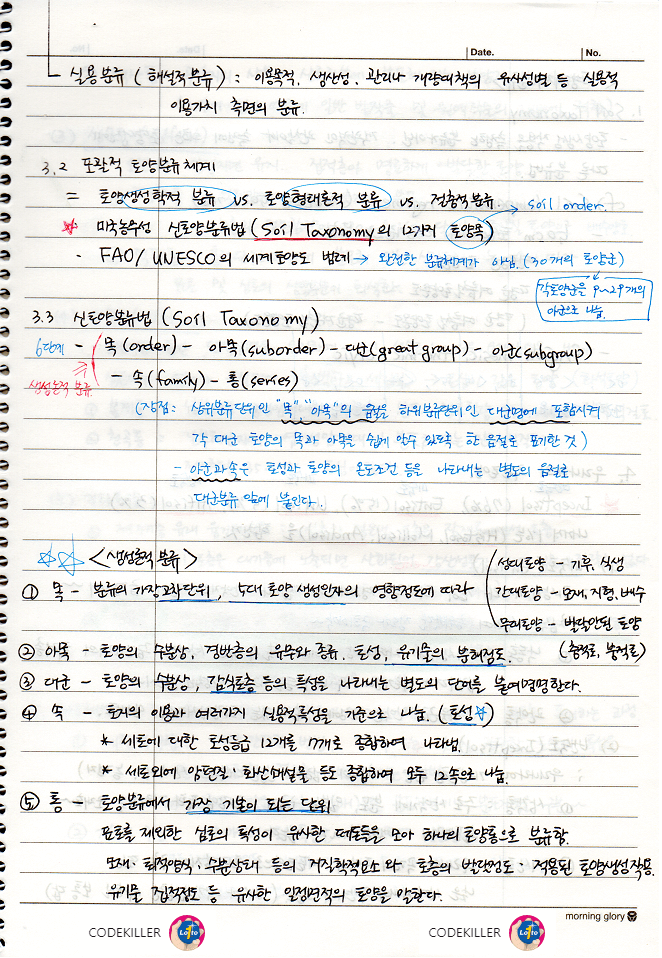 Date. No.
실용분류 (해설적분류) : 이용목적, 생산성, 관리나 개량대책의 유사성별 등 실용적
이용가치 측면의 분류.
3.2 포괄적 토양분류체계
= 토양생성학적 분류 vs. 토양형태론적 분류 vs. 절충적분류
soil order.
* 미국농무성 신토양분류법 (Soil Taxonomy)의 12가지 토양목
· FAO/UNESCO의 세계토양도 범례 → 완전한 분류체계가 아님. (30개의 토양군)
각토양군을 9~29개의
아군으로 나눔.
3.3 신토양분류법 (Soil Taxonomy)
6단계 - 목(order) - 아목(suborder) - 대군(great group) - 아군(subgroup)
생성론적 분류
- 속(family) - 통(series)
(장점: 상위분류단위인 "목", "아목"의 음절을 하위분류단위인 대군명에 포함시켜
각 대군 토양의 목과 아목을 쉽게 알수 있도록 한 음절로 표기한 것)
- 아군과속은 토성과 토양의 온도조건 등을 나타내는 별도의 음절로
대군분류 앞에 붙인다.
☆☆ <생성론적 분류>
성대토양 - 기후, 식생
① 목 - 분류의 가장고차단위, 5대 토양 생성인자의 영향정도에 따라
간대토양 - 모재, 지형, 배수
무대토양 - 발달안된 토양
② 아목 - 토양의 수분상, 경반층의 유무와 종류, 토성, 유기물의 분해정도.
(충적토, 붕적토)
③ 대군 - 토양의 수분상, 감식토층 등의 특성을 나타내는 별도의 단어를 붙여명명한다.
④ 속 - 토지의 이용과 여러가지 실용적특성을 기준으로 나눔. (토성☆)
* 세토에 대한 토성등급 12개를 7개로 종합하여 나타냄.
* 세토외에 암편질·화산쇄설물 등도 종합하여 모두 12속으로 나눔.
⑤ 통 - 토양분류에서 가장 기본이 되는 단위
표토를 제외한 심토의 특성이 유사한 페돈들을 모아 하나의 토양통으로 분류함.
모재·퇴적양식·수분상태 등의 지질학적요소와 토층의 발달정도·적용된 토양생성작용.
유기물 집적정도 등 유사한 일정면적의 토양을 말한다.
morning glory
CODEKILLER Lotto CODEKILLER Lotto